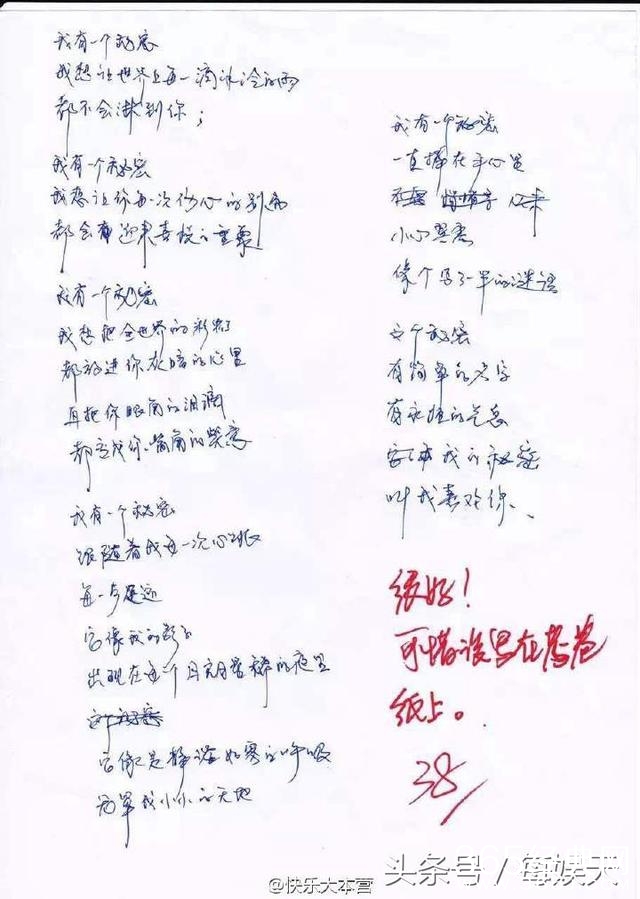 我有一个秘密
我想让世界上每一滴冰冷的雨
都不会淋到你；
我有一个秘密
我想让你每一次伤心的别离
都会有迎来喜悦的重聚
我有一个秘密
我想把全世界的彩虹
都放进你灰暗的心里
且把你眼角的泪滴
都变成你嘴角的笑意
我有一个秘密
跟随着我每一次心跳
每一步足迹
它像我的影子
出现在每个月亮的夜里
它像是静谧如寒的呼吸
笼罩我小小的天地
我有一个秘密
一直捧在手心里
小心翼翼
像个写了一半的谜语
这个秘密
有简单的名字
有永恒的气息
我的秘密
叫我喜欢你、
很好！
可惜误写在答卷
纸上。
38
头条号／每娱天
@快乐大本营